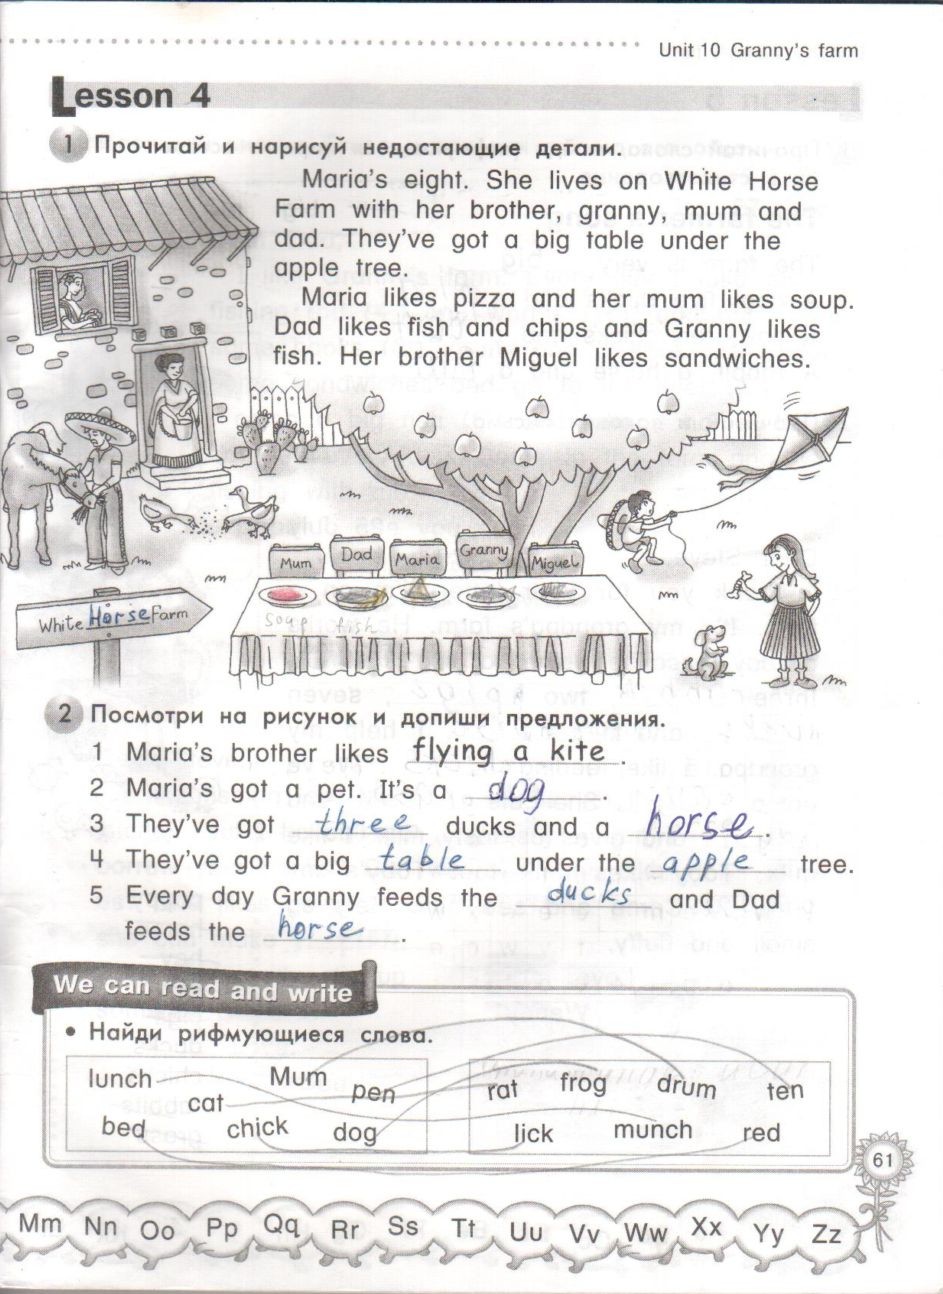 Unit 10 Granny's farm
Lesson 4
1 Прочитай и нарисуй недостающие детали.
Maria's eight. She lives on White Horse
Farm with her brother, granny, mum and
dad. They've got a big table under the
apple tree.
Maria likes pizza and her mum likes soup.
Dad likes fish and chips and Granny likes
fish. Her brother Miguel likes sandwiches.
Mum Dad Maria Granny Miguel
White Horse Farm
soup fish
2 Посмотри на рисунок и допиши предложения.
1 Maria's brother likes flying a kite.
2 Maria's got a pet. It's a dog.
3 They've got three ducks and a horse.
4 They've got a big table under the apple tree.
5 Every day Granny feeds the ducks and Dad
feeds the horse.
We can read and write
• Найди рифмующиеся слова.
lunch Mum pen rat frog drum ten
cat
bed chick dog lick munch red
61
Mm Nn Oo Pp Qq Rr Ss Tt Uu Vv Ww Xx Yy Zz